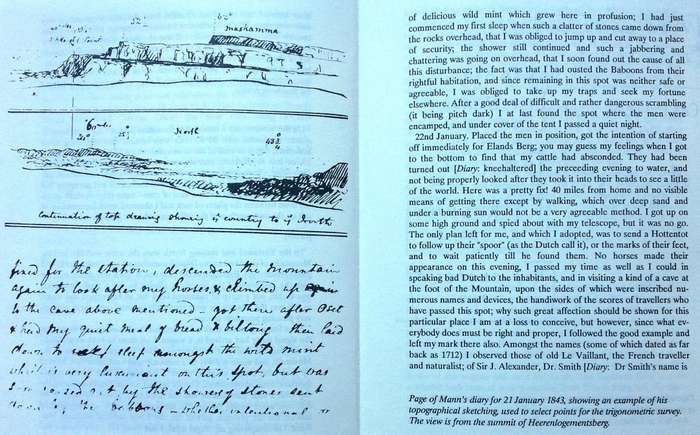 32°
62°
mashamma
60 miles
North
Continuation of top drawing shewing ye country to ye South
fixed for the station, descended the mountain
again to look after my horses, & climbed up again
to the cave above mentioned - got there after Dset
& had my quiet meal of bread & biltong then laid
down to sleep amongst the wild mint
which is very luxuriant on this spot, but was
by the showers of stones sent
down by the baboons - whether intentional or
of delicious wild mint which grew here in profusion; I had just
commenced my first sleep when such a clatter of stones came down from
the rocks overhead, that I was obliged to jump up and cut away to a place
of security; the shower still continued and such a jabbering and
chattering was going on overhead, that I soon found out the cause of all
this disturbance; the fact was that I had ousted the Baboons from their
rightful habitation, and since remaining in this spot was neither safe or
agreeable, I was obliged to take up my traps and seek my fortune
elsewhere. After a good deal of difficult and rather dangerous scrambling
(it being pitch dark) I at last found the spot where the men were
encamped, and under cover of the tent I passed a quiet night.
22nd January. Placed the men in position, got the intention of starting
off immediately for Elands Berg; you may guess my feelings when I got
to the bottom to find that my cattle had absconded. They had been
turned out [Diary: kneehaltered] the preceeding evening to water, and
not being properly looked after they took it into their heads to see a little
of the world. Here was a pretty fix! 40 miles from home and no visible
means of getting there except by walking, which over deep sand and
under a burning sun would not be a very agreeable method. I got up on
some high ground and spied about with my telescope, but it was no go.
The only plan left for me, and which I adopted, was to send a Hottentot
to follow up their "spoor" (as the Dutch call it), or the marks of their feet,
and to wait patiently till he found them. No horses made their
appearance on this evening, I passed my time as well as I could in
speaking bad Dutch to the inhabitants, and in visiting a kind of a cave at
the foot of the Mountain, upon the sides of which were inscribed nu-
merous names and devices, the handiwork of the scores of travellers who
have passed this spot; why such great affection should be shown for this
particular place I am at a loss to conceive, but however, since what ev-
erybody does must be right and proper, I followed the good example and
left my mark there also. Amongst the names (some of which dated as far
back as 1712) I observed those of old Le Vaillant, the French traveller
and naturalist; of Sir J. Alexander, Dr. Smith [Diary: Dr Smith's name is
Page of Mann's diary for 21 January 1843, showing an example of his
topographical sketching, used to select points for the trigonometric survey.
The view is from the summit of Heerenlogementsberg.